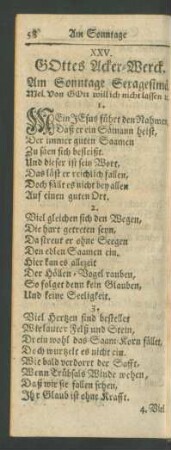 58 Am Sonntage
XXV.
GOttes Acker-Werck.
Am Sonntage Sexagesimä
Mel. Von GOtt will ich nicht lassen ꝛc.
1.
MEin JEsus führt den Nahmen,
Daß er ein Sämann heist,
Der immer guten Saamen
Zu säen sich befleist.
Und dieser ist sein Wort,
Das läst er reichlich fallen,
Doch fällt es nicht bey allen
Auf einen guten Ort.
2.
Viel gleichen sich den Wegen,
Die hart getreten seyn,
Da streut er ohne Seegen
Den edlen Saamen ein,
Hier kan es allezeit
Der Höllen-Vogel rauben,
So folget denn kein Glauben,
Und keine Seeligkeit.
3.
Viel Hertzen sind bestellet
Wie lauter Felß und Stein,
Drein wohl das Saam-Korn fället,
Doch wurtzelt es nicht ein.
Wie bald verdorrt der Safft,
Wenn Trübsals Winde wehen,
Daß wir sie fallen sehen,
Ihr Glaub ist ohne Krafft.
4. Viel